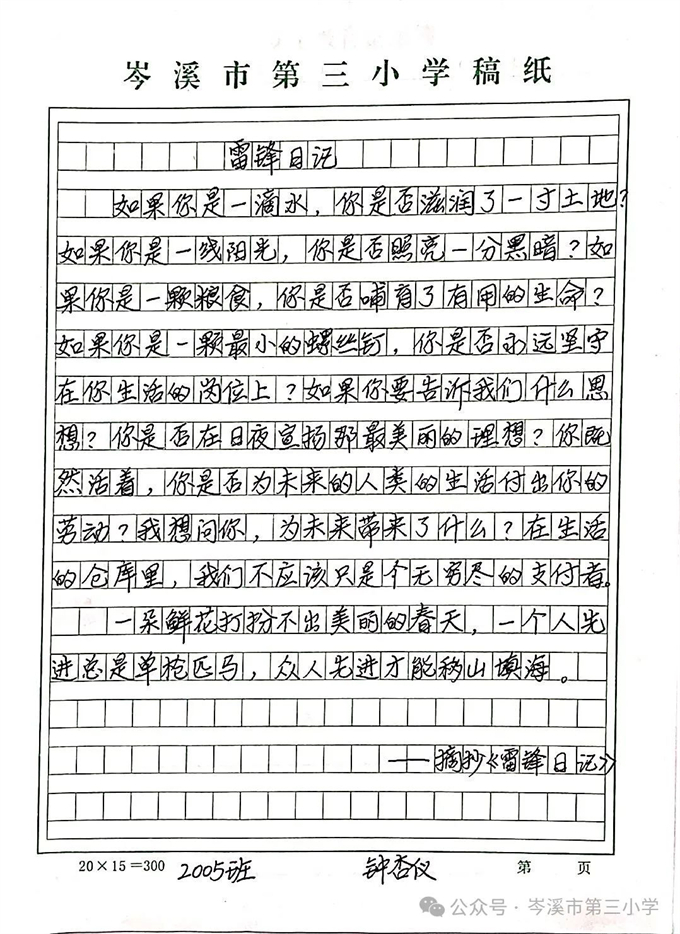 岑溪市第三小学稿纸
雷锋日记
如果你是一滴水，你是否滋润了一寸土地？
如果你是一线阳光，你是否照亮一分黑暗？如
果你是一颗粮食，你是否哺育了有用的生命？
如果你是一颗最小的螺丝钉，你是否永远坚守
在你生活的岗位上？如果你要告诉我们什么思
想？你是否在日夜宣扬那最美丽的理想？你既
然活着，你是否为未来的人类的生活付出你的
劳动？我想问你，为未来带来了什么？在生活
的仓库里，我们不应该只是个无穷尽的支付者。
一朵鲜花打扮不出美丽的春天，一个人先
进总是单枪匹马，众人先进才能移山填海。
——摘抄《雷锋日记》
20×15=300 2005班 钟杏仪 第 页
公众号·岑溪市第三小学